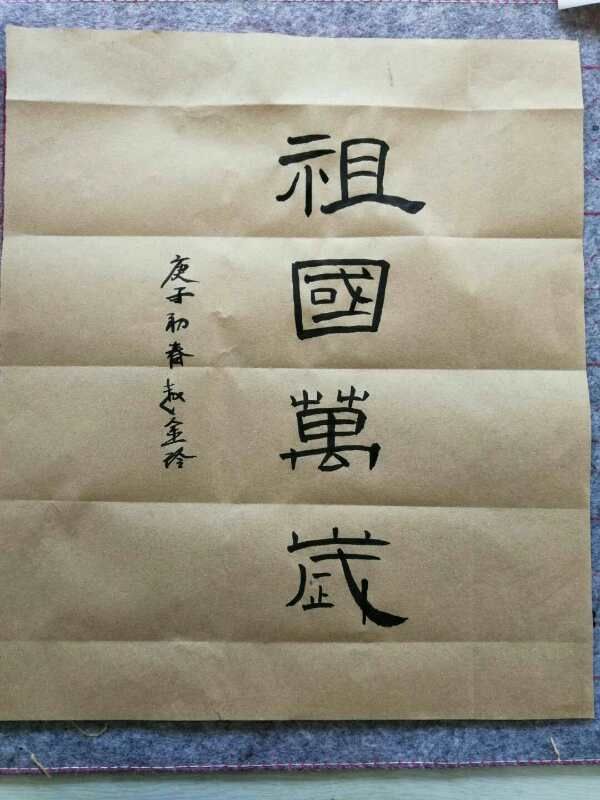 祖國萬歳
庚子初春 金玲